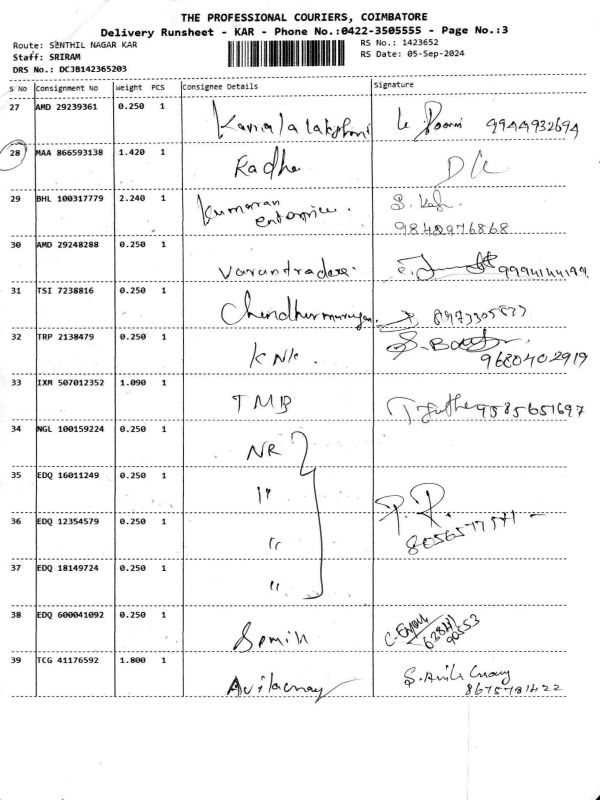 THE PROFESSIONAL COURIERS, COIMBATORE
Delivery Runsheet - KAR - Phone No.:0422-3505555 - Page No.:3
Route: SENTHIL NAGAR KAR
RS No.: 1423652
Staff: SRIRAM
RS Date: 05-Sep-2024
DRS No.: DCJB142365203
S No Consignment No Weight PCS Consignee Details Signature
27 AMD 29239361 0.250 1 Kamalalakshmi 9944932694
28 MAA 866593138 1.420 1 Radha
29 BHL 100317779 2.240 1 Kumaran
enterprise. 9842976868
30 AMD 29248288 0.250 1 Varuntraders
31 TSI 7238816 0.250 1
32 TRP 2138479 0.250 1 KNK. 9680402919
33 IXM 507012352 1.090 1 TMB 9585651697
34 NGL 100159224 0.250 1 NR
35 EDQ 16011249 0.250 1 "
36 EDQ 12354579 0.250 1 " P. R.
8056577571
37 EDQ 18149724 0.250 1 "
38 EDQ 600041092 0.250 1
39 TCG 41176592 1.800 1